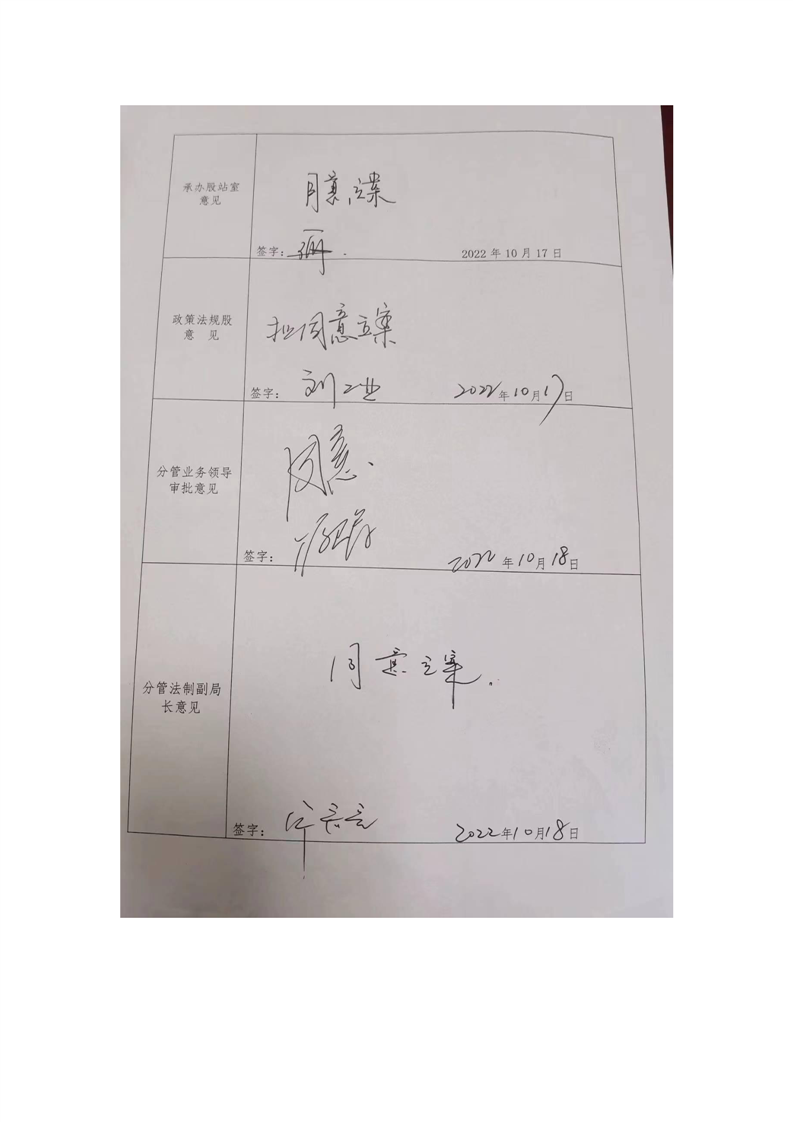 承办股站室
意见
同意立案
签字:
2022 年 10 月 17 日
政策法规股
意 见
拟同意立案
签字: 刘工业 2022年10月17日
分管业务领导
审批意见
同意.
签字: 2022年10月18日
分管法制副局
长意见
同意立案.
签字: 2022年10月18日